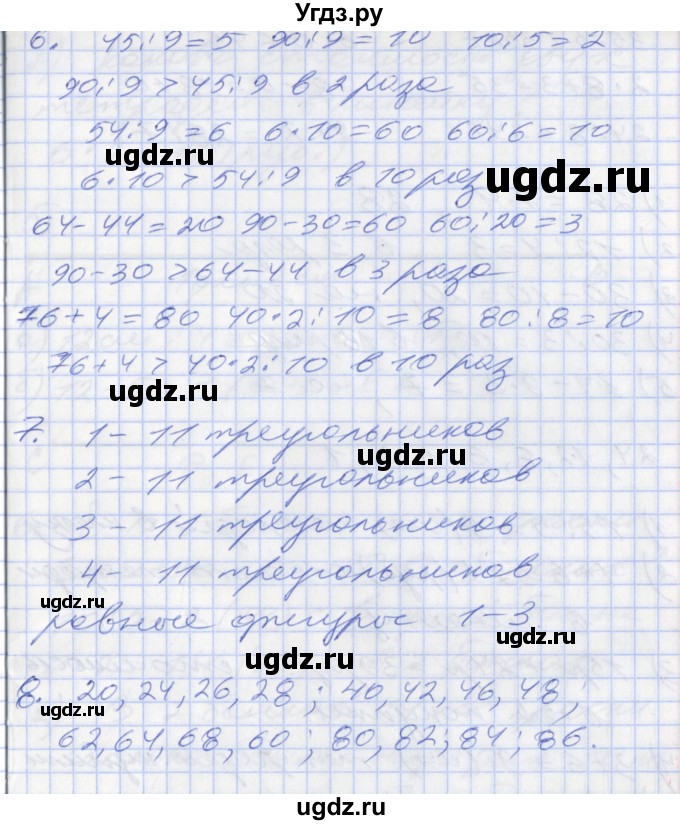 Угдз.ру
6. 45:9=5 90:9=10 10:5=2
90:9>45:9 в 2 раза
54:9=6 6·10=60 60:6=10
ugdz.ru ugdz.ru
6·10>54:9 в 10 раз
64-44=20 90-30=60 60:20=3
90-30>64-44 в 3 раза
76+4=80 40·2:10=8 80:8=10
76+4>40·2:10 в 10 раз
ugdz.ru
7. 1- 11 треугольников
ugdz.ru
2- 11 треугольников
3- 11 треугольников
4- 11 треугольников
ugdz.ru
равные фигуры 1-3
ugdz.ru
8. 20, 24, 26, 28; 40, 42, 46, 48;
ugdz.ru ugdz.ru
62, 64, 68, 60; 80, 82; 84; 86.
ugdz.ru